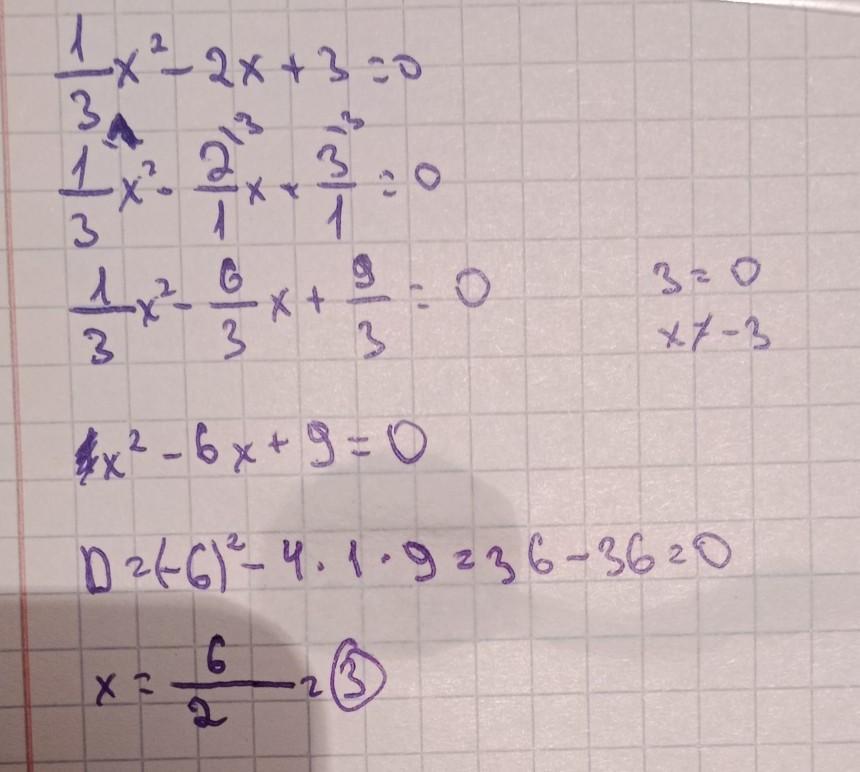 1/3 x² - 2x + 3 = 0
1/3 \1 x² - 2/1 \3 x + 3/1 \3 = 0
1/3 x² - 6/3 x + 9/3 = 0
3 = 0
x ≠ -3
x² - 6x + 9 = 0
D = (-6)² - 4 · 1 · 9 = 36 - 36 = 0
x = 6/2 = 3